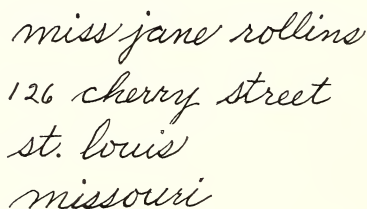 miss jane rollins
126 cherry street
st. louis
missouri